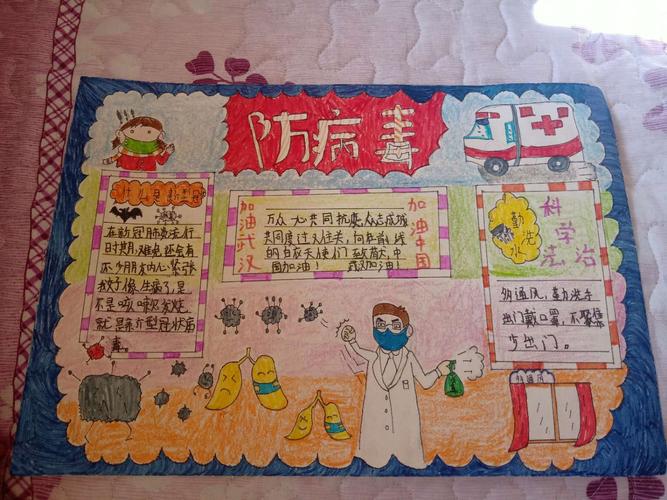 防病毒
在新冠肺炎流行
时期,难免还会有
不少朋友内心紧张
孩子像生病了,是
不是咳嗽发烧
就是新型冠状病
毒。
加油武汉
万众一心共同抗疫,众志成城
共同度过
的白衣天使们致敬!中
国加油! 武汉加油!
加油中国
勤洗水
科学
法治
多通风,勤洗手
出门戴口罩,不聚集
少出门。